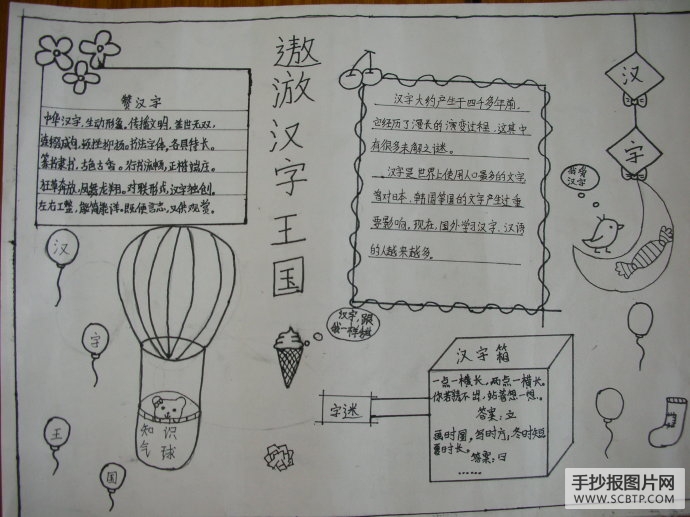 遨游汉字王国
赞汉字
中华汉字,生动形象。传播文明,盖世无双。
连缀成句,顿挫抑扬。书法字体,各具特长。
篆书隶书,古色古香。行书流畅,正楷端庄。
狂草奔放,凤舞龙翔。对联形式,汉字独创。
左右工整,能简能详。既便言志,又供观赏。
汉字大约产生于四千多年前。
它经历了漫长的演变过程,这其中
有很多未解之谜。
汉字是世界上使用人口最多的文字,
曾对日本、韩国等国的文字产生过重
要影响。现在,国外学习汉字、汉语
的人越来越多。
汉
字
我爱
汉字
汉
字
王
国
知识
气球
汉字,跟
我一样
字迷
汉字箱
一点一横长,两点一横长。
你若猜不出,站着想一想。
答案:立
画时圆,写时方,冬时短
夏时长。
答案:日
……
手抄报图片网
WWW.SCBTP.COM